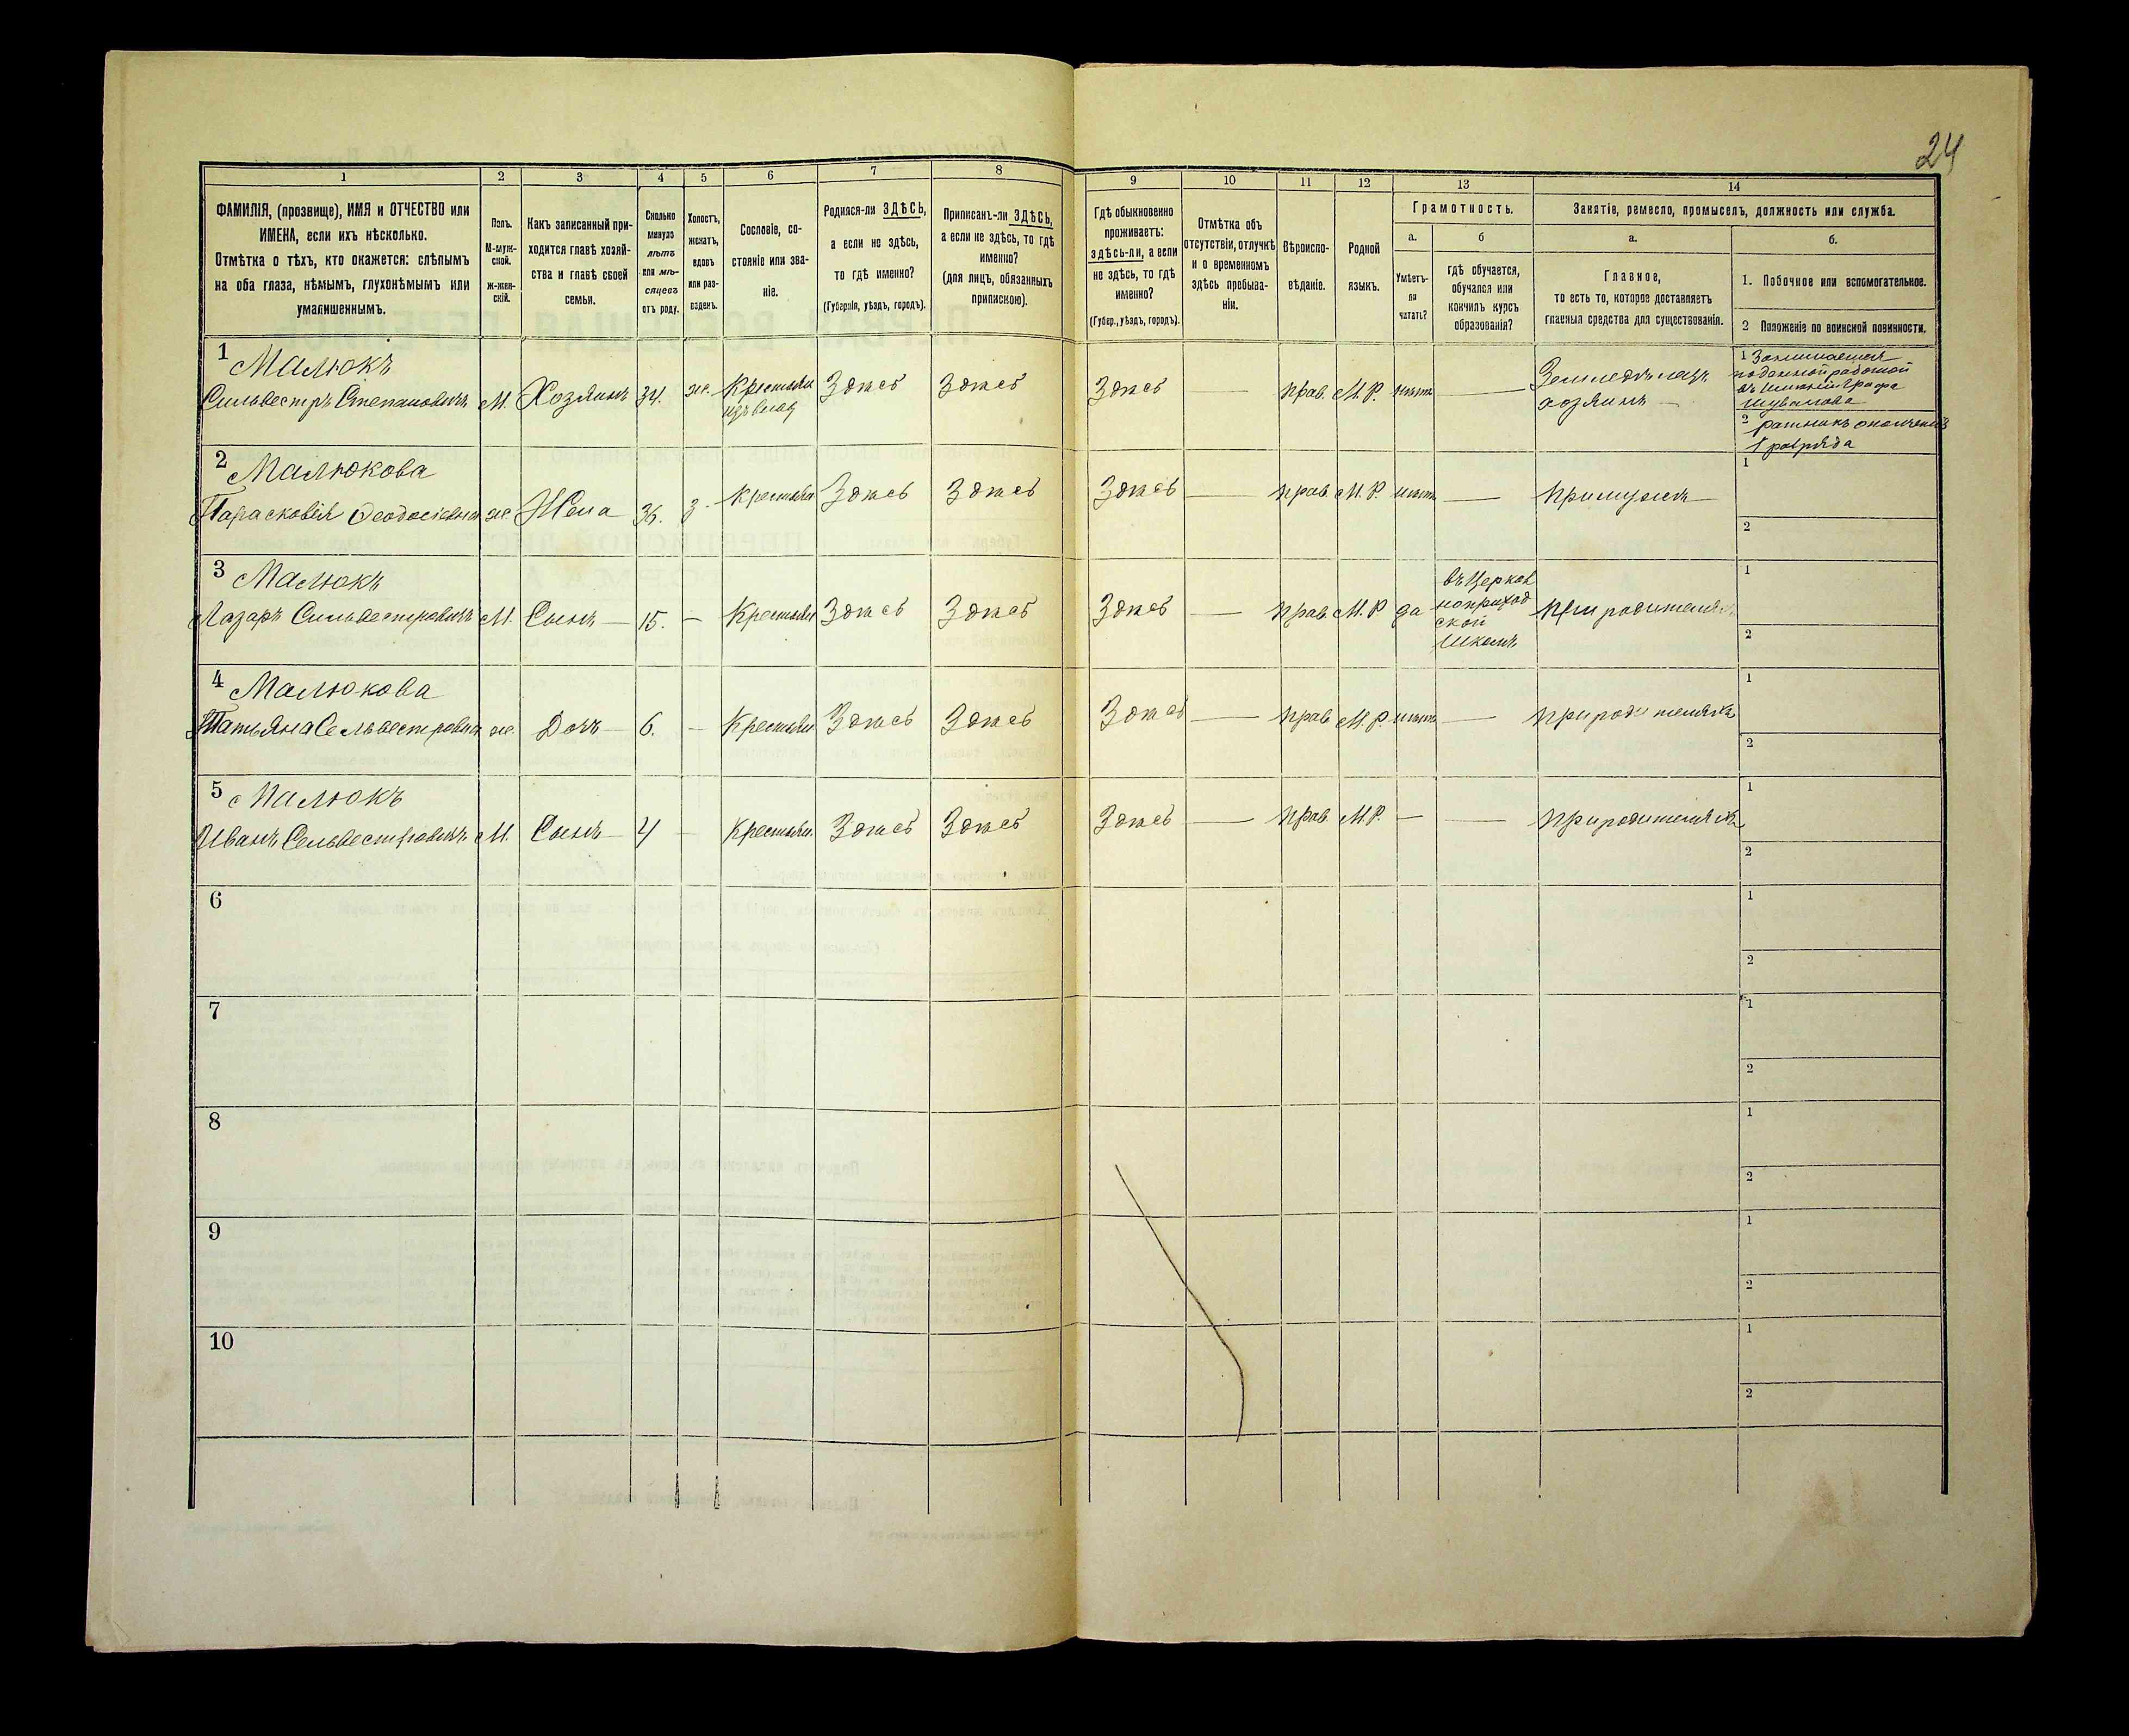 24
1
2
3
4
5
6
7
8
9
10
11
12
13
14
ФАМИЛІЯ, (прозвище), ИМЯ и ОТЧЕСТВО или
ИМЕНА, если ихъ нѣсколько.
Отмѣтка о тѣхъ, кто окажется: слѣпымъ
на оба глаза, нѣмымъ, глухонѣмымъ или
умалишеннымъ.
Полъ.
М-муж-
ской.
ж-жен-
скій.
Какъ записанный при-
ходится главѣ хозяй-
ства и главѣ своей
семьи.
Сколько
минуло
лѣтъ
или мѣ-
сяцевъ
отъ роду.
Холостъ,
женатъ,
вдовъ
или раз-
веденъ.
Сословіе, со-
стояніе или зва-
ніе.
Родился-ли ЗДѢСЬ,
а если не здѣсь,
то гдѣ именно?
(Губернія, уѣздъ, городъ).
Приписанъ-ли ЗДѢСЬ,
а если не здѣсь, то гдѣ
именно?
(для лицъ, обязанныхъ
припискою).
Гдѣ обыкновенно
проживаетъ:
здѣсь-ли, а если
не здѣсь, то гдѣ
именно?
(Губер., уѣздъ, городъ).
Отмѣтка объ
отсутствіи, отлучкѣ
и о временномъ
здѣсь пребыва-
ніи.
Вѣроиспо-
вѣданіе.
Родной
языкъ.
Грамотность.
а.
Умѣетъ-
ли
читать?
б
гдѣ обучается,
обучался или
кончилъ курсъ
образованія?
Занятіе, ремесло, промыселъ, должность или служба.
а.
Главное,
то есть то, которое доставляетъ
главныя средства для существованія.
б.
1. Побочное или вспомогательное.
2 Положеніе по воинской повинности.
1 Малюкъ
Сильвестръ Степановичъ М. Хозяинъ 34. же. Крестьян Здѣсь Здѣсь Здѣсь — прав. М.Р. нѣтъ — Земледѣлецъ
изъ влад
хозяинъ —
1 Занимается
поденной работой
въ имѣніи Графа
Шувалова
2 ратникъ ополченія
1 разряда
2 Малюкова
Парасковія Ѳеодосіевна же. Жена 36. з- Крестьян Здѣсь Здѣсь Здѣсь — прав М.Р. нѣтъ — при мужѣ —
1
2
3 Малюкъ
Лазарь Сильвестровичъ М. Сынъ — 15. — Крестьян Здѣсь Здѣсь Здѣсь — прав. М.Р да
въ церков
но приход
ской
школѣ
при родителяхъ
1
2
4 Малюкова
Татьяна Сельвестровна же. Дочь — 6. — Крестьян Здѣсь Здѣсь Здѣсь — прав М.Р. нѣтъ — при родителяхъ
1
2
5 Малюкъ
Иванъ Сельвестровичъ М. Сынъ — 4 — Крестьян. Здѣсь Здѣсь Здѣсь — прав. М.Р. — — при родителяхъ
1
2
6
1
2
7
1
2
8
1
2
9
1
2
10
1
2